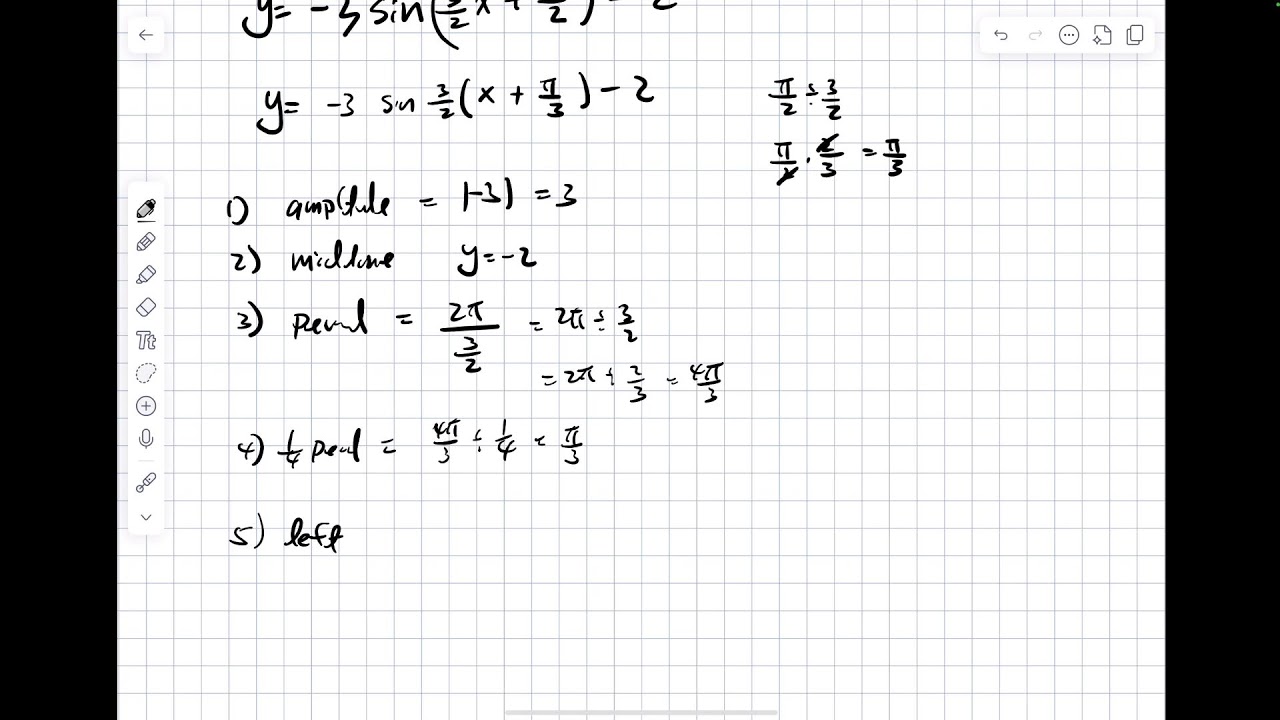 y = -3 sin(3/2 x + π/2) - 2
y = -3 sin 3/2 (x + π/3) - 2
π/2 ÷ 3/2
π/2 · 2/3 = π/3
1) amplitude = |-3| = 3
2) midline y = -2
3) period = 2π/(3/2) = 2π ÷ 3/2
= 2π ÷ 2/3 = 4π/3
4) 1/4 period = 4π/3 ÷ 1/4 = π/3
5) left
Tt